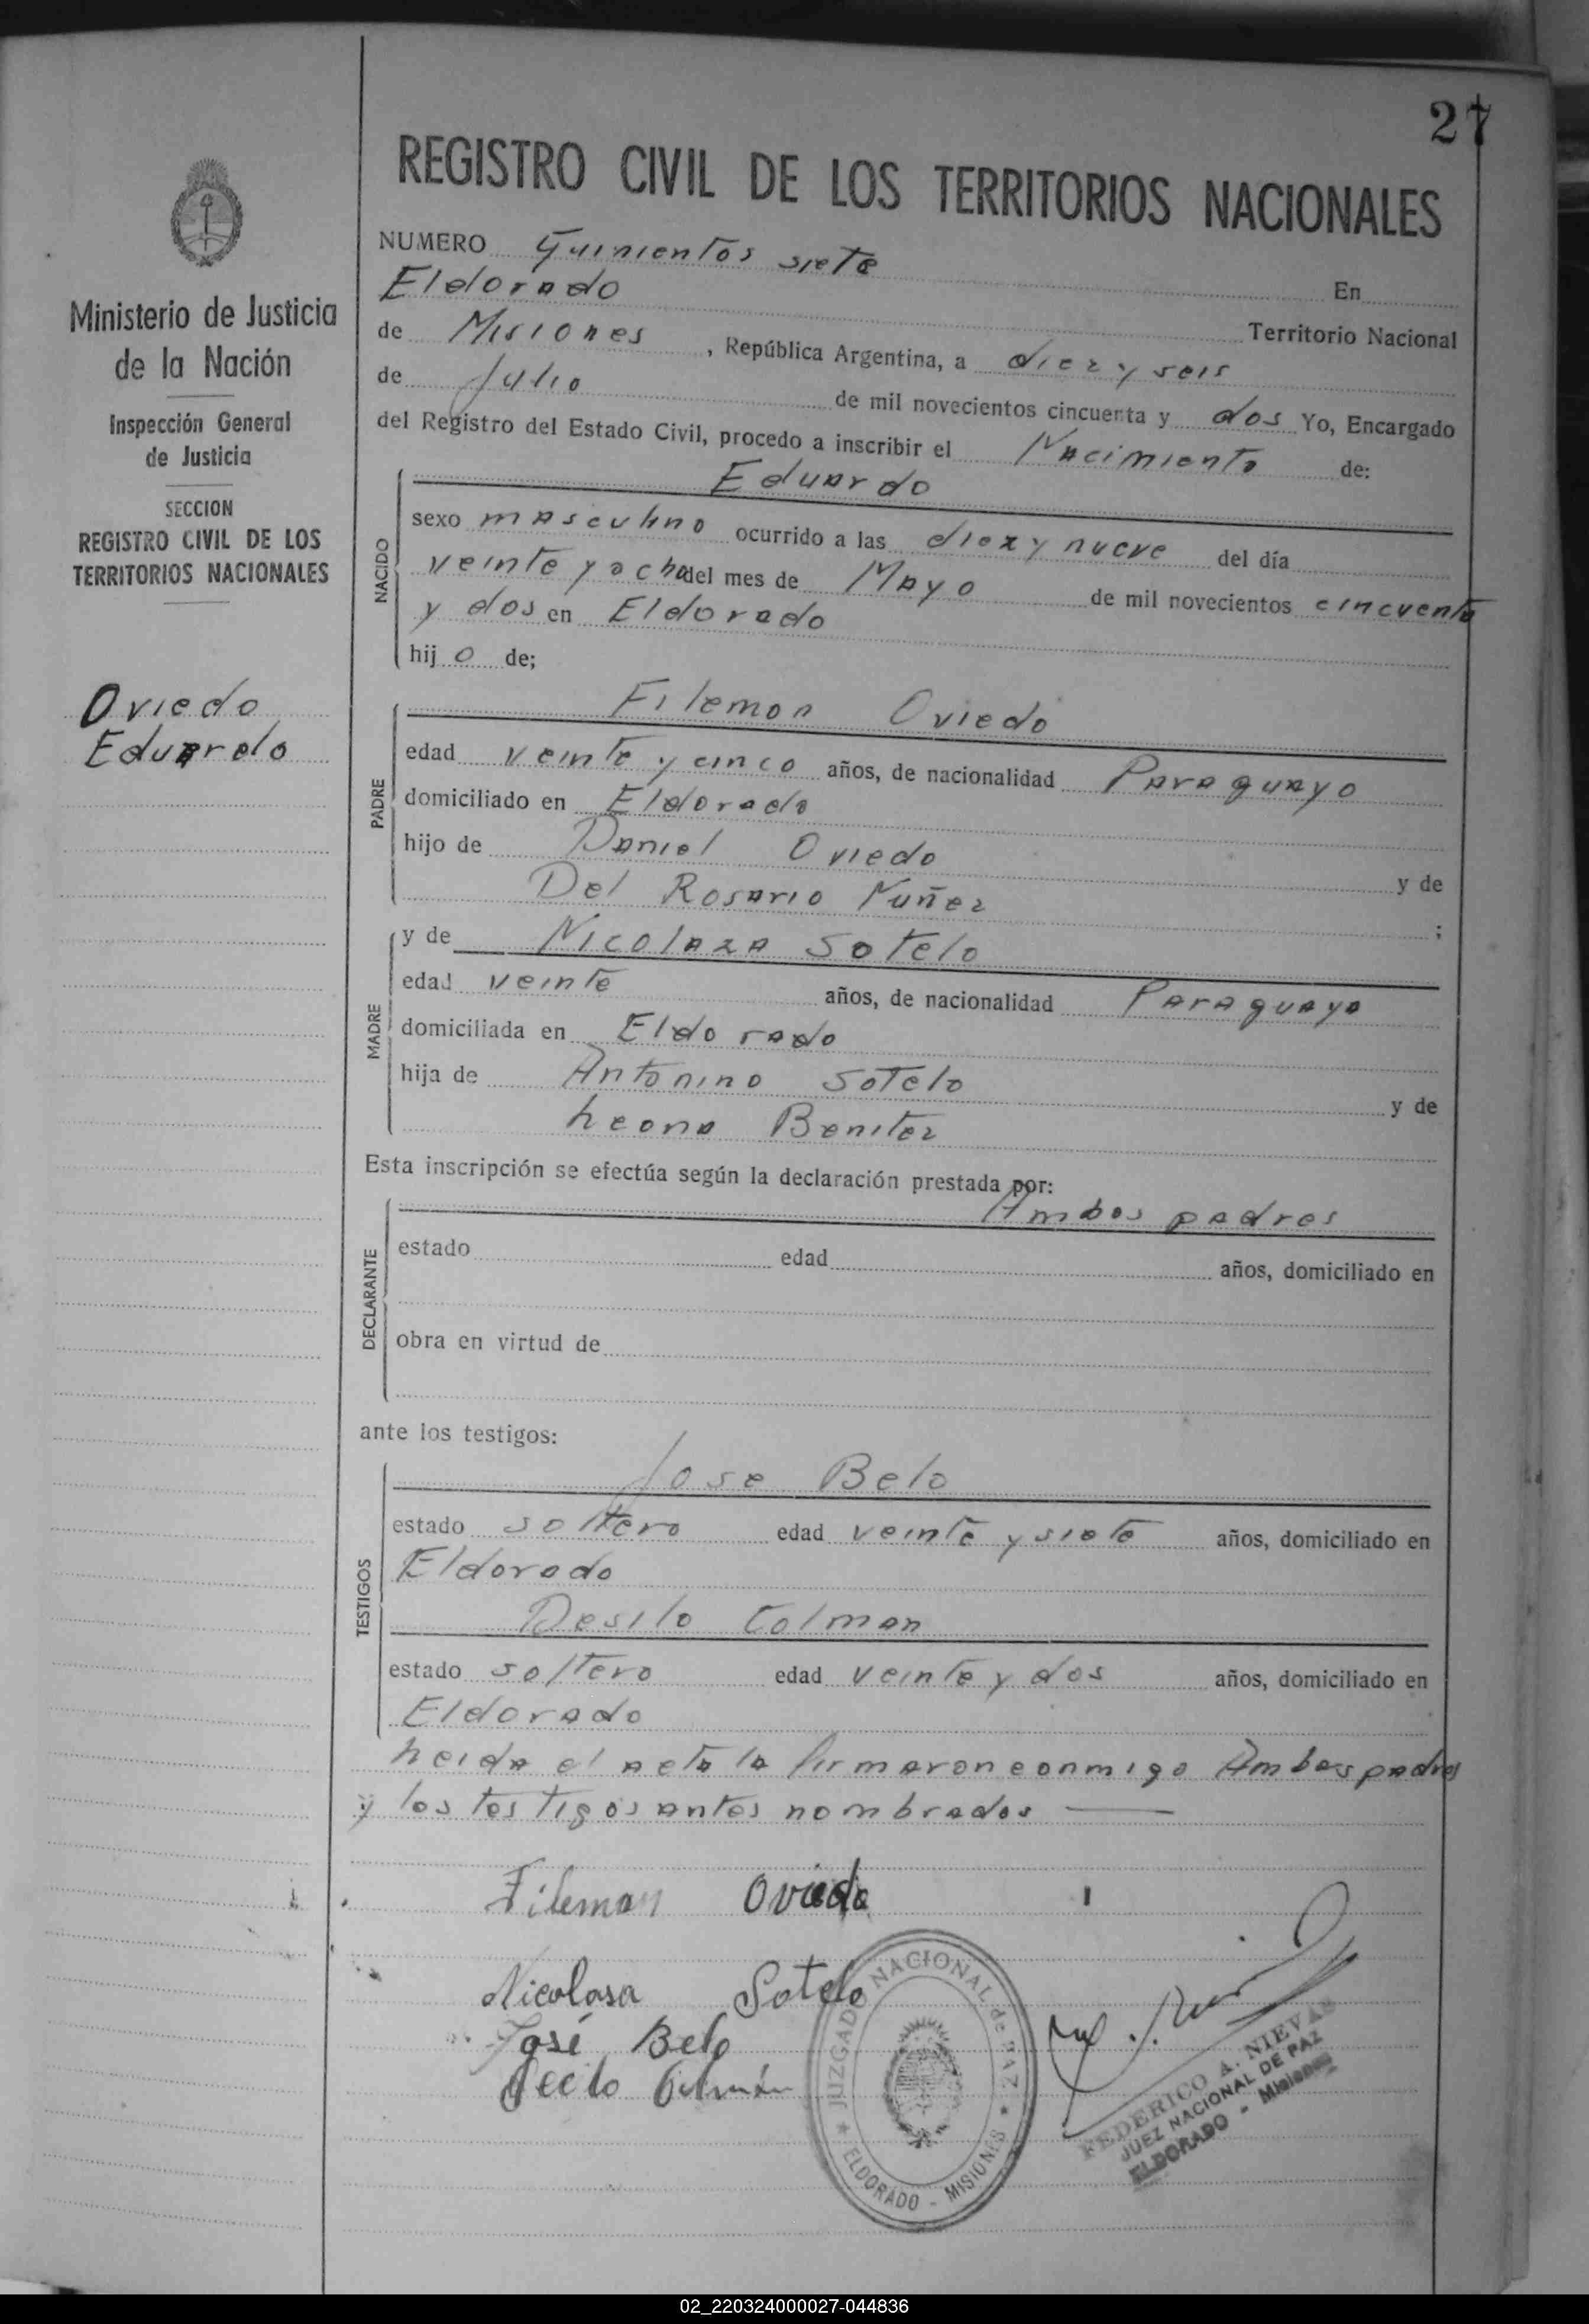 27
REGISTRO CIVIL DE LOS TERRITORIOS NACIONALES
Ministerio de Justicia
de la Nación
Inspección General
de Justicia
SECCION
REGISTRO CIVIL DE LOS
TERRITORIOS NACIONALES
Oviedo
Eduardo
NUMERO Quinientos siete
Eldorado En
de Misiones Territorio Nacional
, República Argentina, a diez y seis
de Julio de mil novecientos cincuenta y dos Yo, Encargado
del Registro del Estado Civil, procedo a inscribir el Nacimiento de:
NACIDO
Eduardo
sexo masculino ocurrido a las diez y nueve del día
veinte y ocho del mes de Mayo de mil novecientos cincuenta
y dos en Eldorado
hijo de;
PADRE
Filemon Oviedo
edad veinte y cinco años, de nacionalidad Paraguayo
domiciliado en Eldorado
hijo de Daniel Oviedo y de
Del Rosario Nuñez ;
MADRE
y de Nicolaza Sotelo
edad veinte años, de nacionalidad Paraguaya
domiciliada en Eldorado
hija de Antonino Sotelo y de
Leona Benitez
Esta inscripción se efectúa según la declaración prestada por:
DECLARANTE
Ambos padres
estado edad años, domiciliado en
obra en virtud de
ante los testigos:
TESTIGOS
Jose Belo
estado soltero edad veinte y siete años, domiciliado en
Eldorado
Desilo Colman
estado soltero edad veinte y dos años, domiciliado en
Eldorado
Leida el acta la firmaron conmigo Ambos padres
y los testigos antes nombrados
Filemon Oviedo
Nicolasa Sotelo
José Belo
JUZGADO NACIONAL de PAZ
ELDORADO - MISIONES
FEDERICO A. NIEVAS
JUEZ NACIONAL DE PAZ
ELDORADO - Misiones
02_220324000027-044836